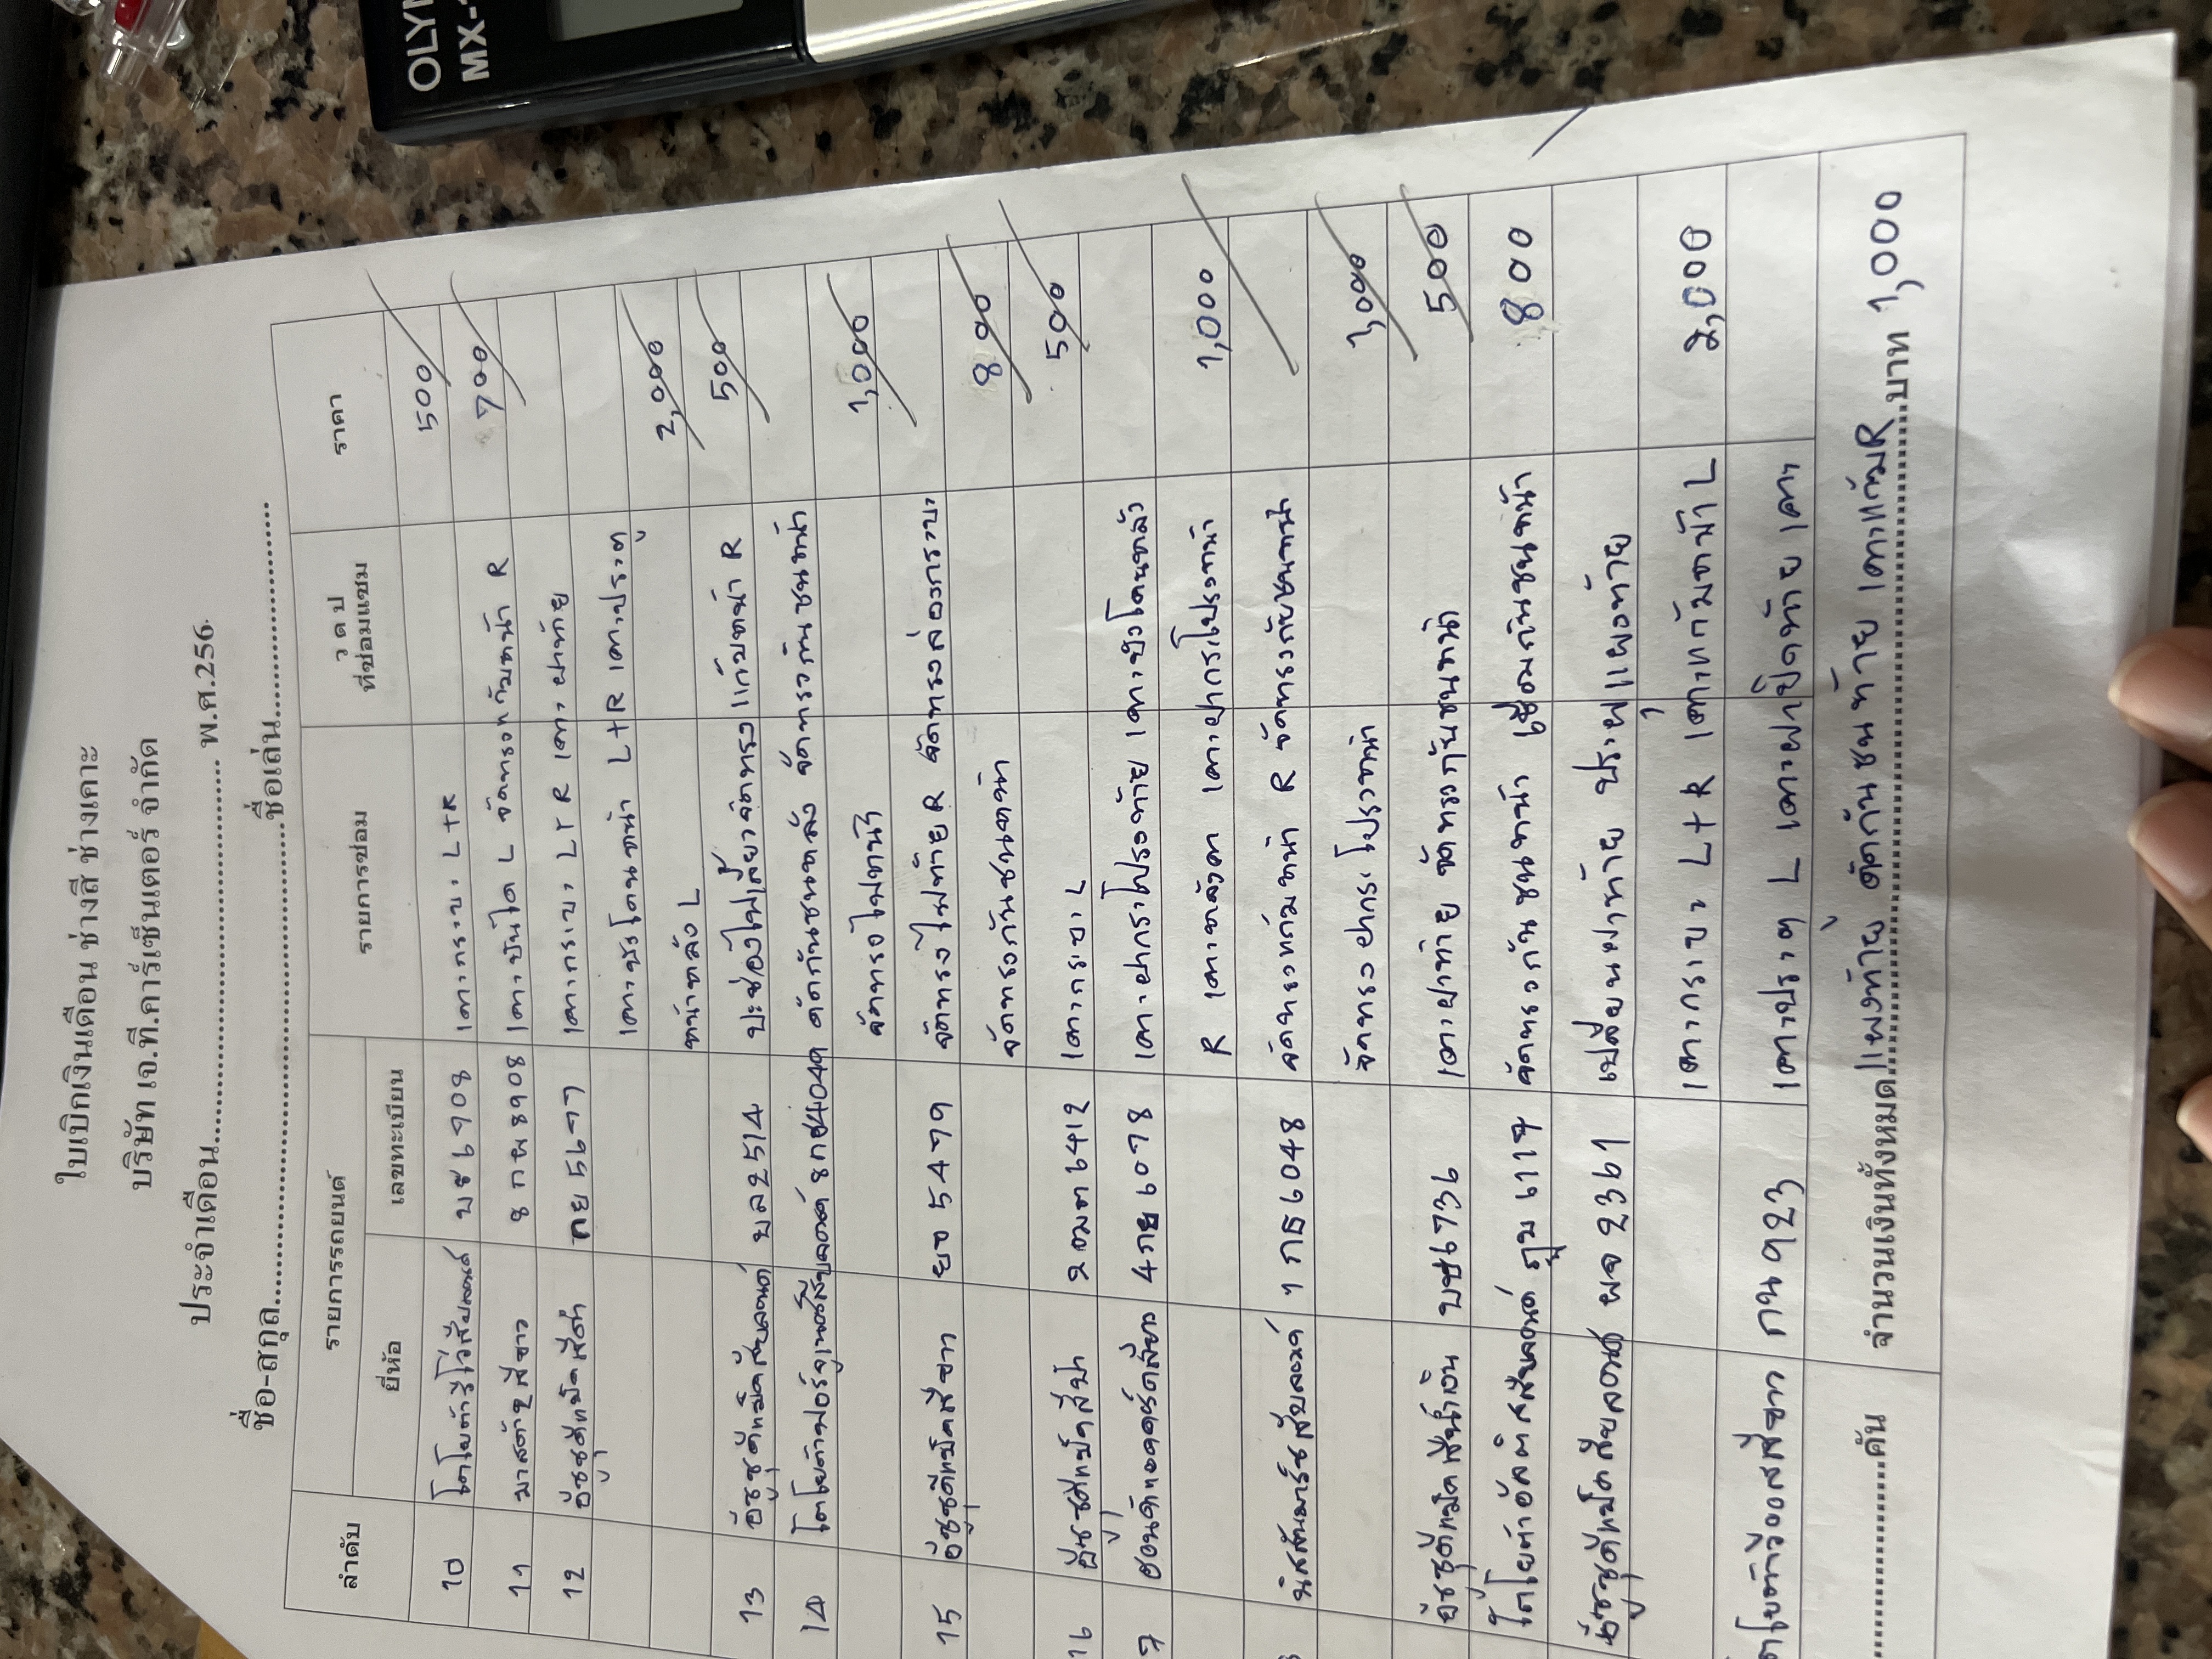 OLYM
MX-
ใบเบิกเงินเดือน ช่างสี ช่างเคาะ
บริษัท เจ.ที.คาร์เซ็นเตอร์ จำกัด
ประจำเดือน................................ พ.ศ.256
ชื่อ-สกุล................................ชื่อเล่น................................
ลำดับ รายการรถยนต์ รายการซ่อม ว ด ป ที่ซ่อมแซม ราคา
ยี่ห้อ เลขทะเบียน
10 โตโยต้ารีโว่สีบลอนด์ บช 6908 เคาะกระบะ L+R 500
11 มาสด้า2สีขาว 8กผ 8908 เคาะบันได L จัดทรงแก้มหน้า R 700
12 อีซูซุดีแม็คสีดำ 5677 เคาะกระบะ L+R เคาะฝาท้าย
เคาะบังโคลนหน้า L+R เคาะประตู
หน้าหลัง L 2,000
13 อีซูซุดีแม็คสีบลอนด์ บล 2514 ปะช่องไฟเลี้ยวจัดทรงแก้มหน้า R 500
14 โตโยต้าฟอร์จูนเนอร์สีบลอนด์ ดัดกันชนหลัง จัดทรงกันชนหน้า
จัดทรงไฟหน้า 1,000
15 อีซูซุดีแม็คสีขาว ยจ 5479 จัดทรงไฟท้าย R จัดทรงล่องกระบะ
จัดทรงกันชนหน้า 800
16 อีซูซุดีแม็คสีฟ้า 2ฒฒ 6412 เคาะกระบะ L 500
7 ฮอนด้าแอคคอร์ดสีขาว 4กย 6078 เคาะฝากระโปรงท้าย เคาะบังโคลนหลัง
R เคาะหลังคา เคาะฝากระโปรงหน้า 1,000
นิสสันมาร์ชสีบลอนด์ 1กธ 6048 จัดทรงแก้มหน้า R จัดทรงกันชนหน้า
จัดทรงฝากระโปรงหน้า 1,000
อีซูซุดีแม็คสีน้ำเงิน บช 6736 เคาะฝาท้าย จัดทรงกันชนหน้า 500
โตโยต้าอัลติสสีบลอนด์ จัดทรงกันชนหน้า เชื่อมกันชนหน้า 800
อีซูซุดีแม็คสีบลอนด์ ผจ 2361 เปลี่ยนฝาท้าย ประตูแผงท้าย
เคาะกระบะ L+R เคาะแก้มหน้า L 2,000
โตโยต้าวีออสสีขาว กน 923 เคาะประตู L เคาะฝาปิดท้าย เคาะ
แผงท้าย ดัดกันชนท้าย เคาะแก้ม R 1,000
................คัน จำนวนเงินทั้งหมด................................บาท